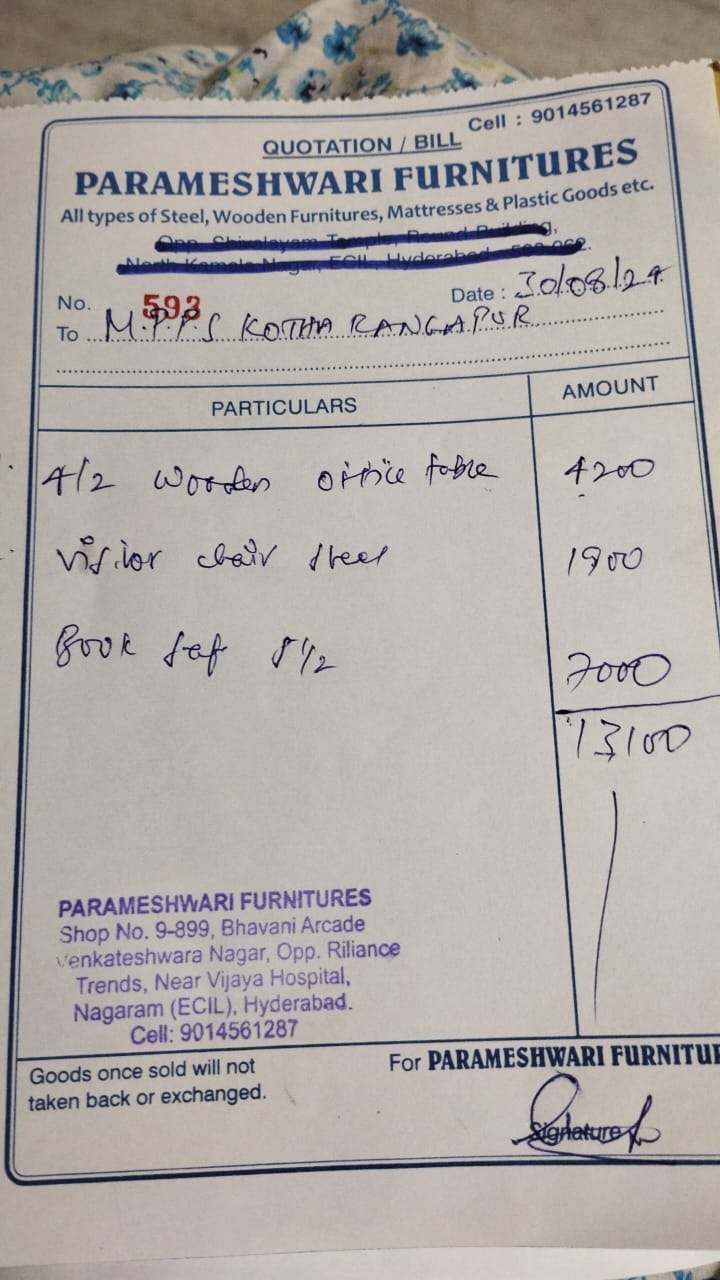 Cell : 9014561287
QUOTATION / BILL
PARAMESHWARI FURNITURES
All types of Steel, Wooden Furnitures, Mattresses & Plastic Goods etc.
Opp. Shivalayam Temple, Round Building,
North Kamala Nagar, ECIL, Hyderabad - 500 062.
No. 593
Date : 30/08/24
To M.P.P.S KOTHA RANGAPUR
PARTICULARS AMOUNT
4/2 Wooden office table 4200
Visitor chair steel 1900
Book 7000
13100
PARAMESHWARI FURNITURES
Shop No. 9-899, Bhavani Arcade
Venkateshwara Nagar, Opp. Riliance
Trends, Near Vijaya Hospital,
Nagaram (ECIL), Hyderabad.
Cell: 9014561287
Goods once sold will not
taken back or exchanged.
For PARAMESHWARI FURNITU
Signature